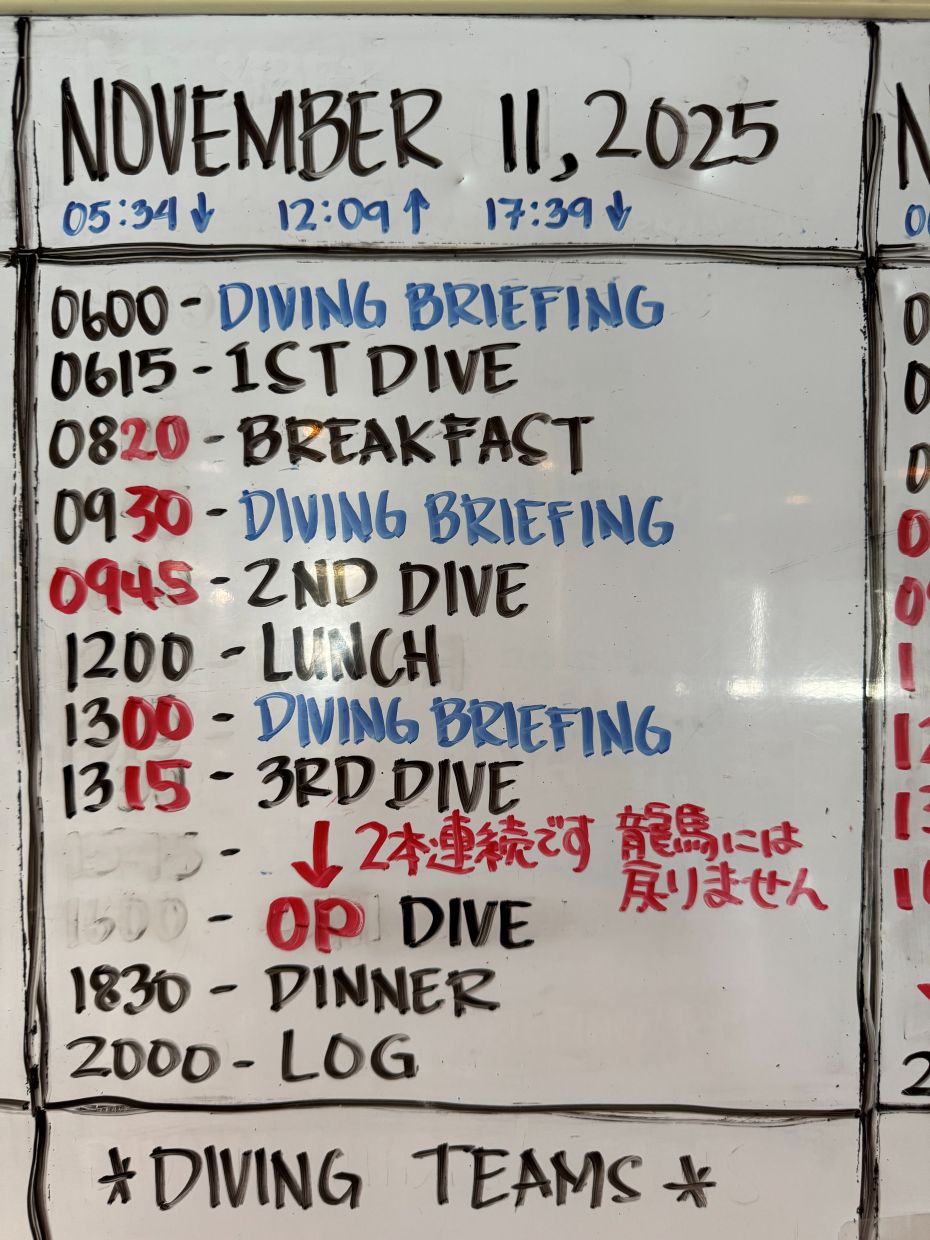 NOVEMBER 11, 2025
05:34↓ 12:09↑ 17:39↓
0600 - DIVING BRIEFING
0615 - 1ST DIVE
0820 - BREAKFAST
0930 - DIVING BRIEFING
0945 - 2ND DIVE
1200 - LUNCH
1300 - DIVING BRIEFING
1315 - 3RD DIVE
- ↓ 2本連続です 龍馬には
戻りません
- OP DIVE
1830 - DINNER
2000 - LOG
*DIVING TEAMS*